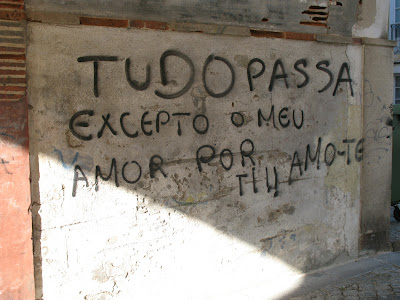 TUDO PASSA
EXCEPTO O MEU
AMOR POR TI!! AMO-TE